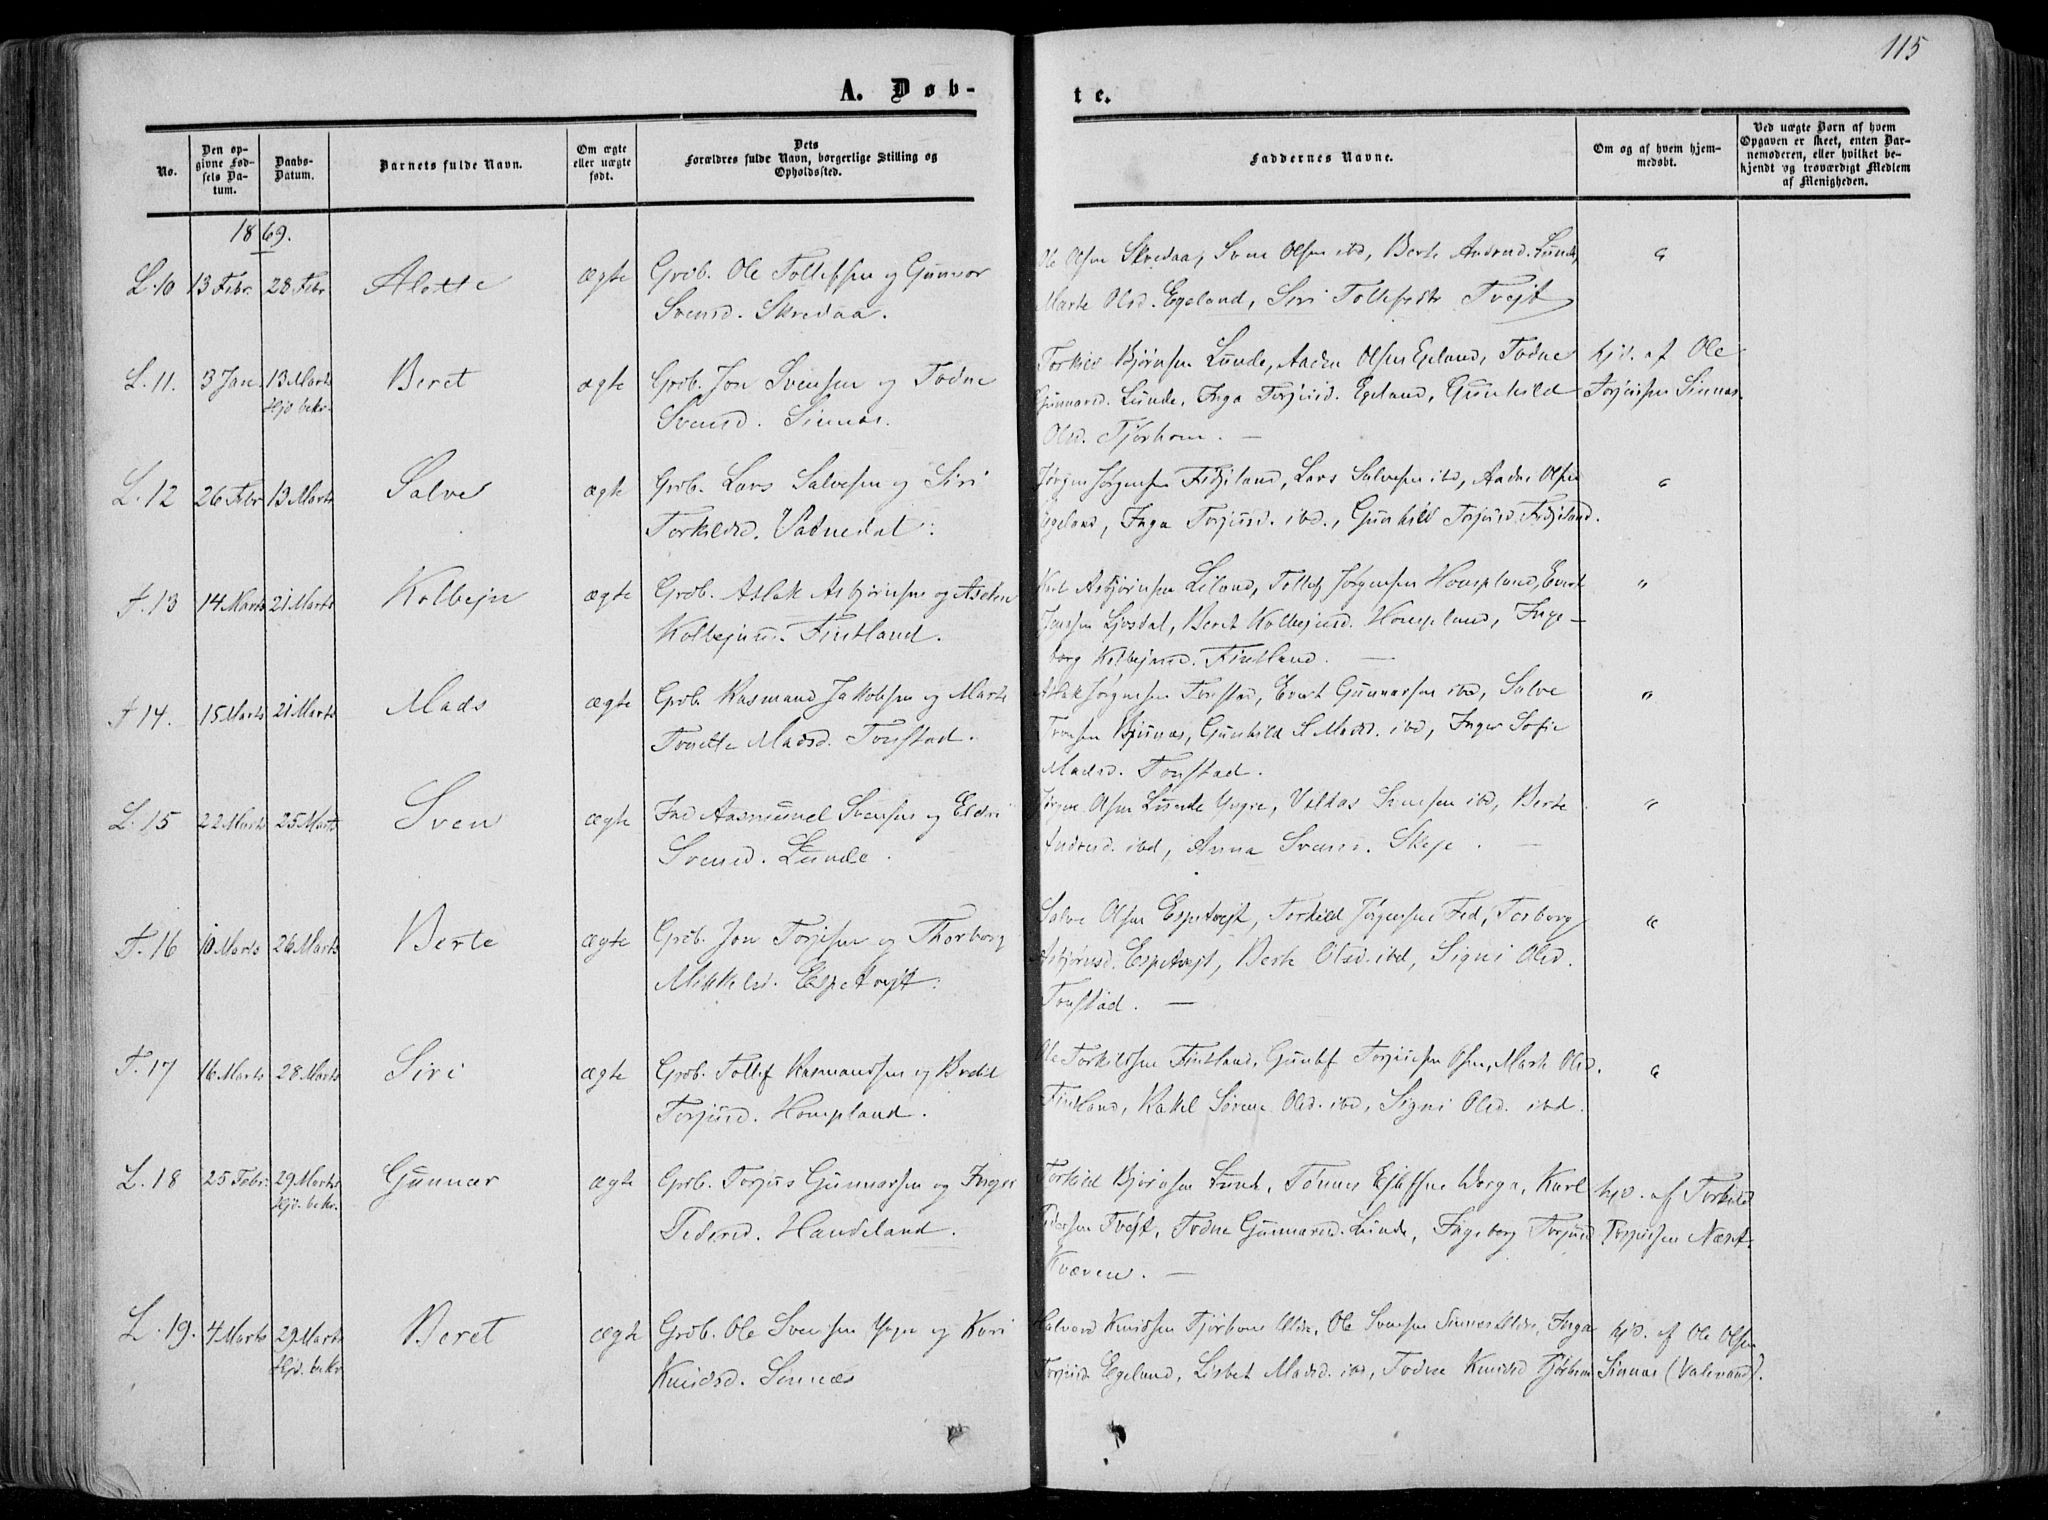 115
A. Døb-
te.
No.
Den op-
givne Fød-
sels Da-
tum.
Daabs-
Datum.
Barnets fulde Navn.
Om ægte
eller uægte
født.
Dets
Forældres fulde Navn, borgerlige Stilling og
Opholdssted.
Faddernes Navne.
Om og af hvem hjem-
medøbt.
Ved uægte Børn af hvem
Opgaven er skeet, enten Bar-
nemoderen, eller hvilket be-
kjendt og troværdigt Medlem
af Menigheden.
1869.
L. 10 13 Febr. 28 Febr Alette ægte Grdb. Ole Tollefsen og Gunvor
Svensd. Skredaa.
Ole Olsen Skredaa, Sven Olsen ibd, Berte Andresd. Lunde, "
Marte Olsd. Egeland, Siri Tollefsdtr Tvejt
L. 11. 3 Jan. 13 Marts Beret ægte Grdb. Jon Svensen og Todne
Hjd bekr. Svensd. Sinnæs.
Torkild Bjørnsen Lunde, Aaden Olsen Egeland, Todne hjd. af Ole
Gunnarsd. Lunde, Inga Torjusd. Egeland, Gunhild Torjussen Sinnæs.
Olsd. Tjørhom. —
L. 12 26 Febr 13 Marts Salve ægte Grdb. Lars Salvesen og Siri
Torkildsd. Vatnedal.
Jørgen Jørgensen Fidjeland, Lars Salvesen ibd, Aaden Olsen "
Egeland, Inga Torjusd. ibd., Gunhild Torjusd. Fidjeland.
F. 13 14 Marts 21 Marts Kolbejn ægte Grdb. Aslak Asbjørnsen og
Kolbejnsd. Fintland.
Asbjørnsen Liland, Tollef Jørgensen Hompland, Evert "
Jonssen Ljosdal, Beret Kolbejnsd. Hompland, Inge-
borg Kolbejnsd. Fintland. —
F 14. 15 Marts 21 Marts Mads ægte Grdb. Rasmund Jakobsen og Marte
Tonette Madsd. Tonstad.
Aslak Jørgensen Tonstad, Evert Gunnarsen ibd, Salve "
Bjunæs, Gunhild S. Madsd. ibd, Inger Sofie
Madsd. Tonstad.
L. 15 22 Marts 25 Marts Sven ægte Ind Aasmund Svensen og Eldri
Svensd. Lunde.
Jørgen Olsen Lunde Yngre, Svensen ibd, Berte "
Andresd. ibd, Anna Svensd. Skeje. —
F. 16 10 Marts 26 Marts Berte ægte Grdb. Jon Torjesen og Thorborg
Mikkelsd. Espetvejt.
Salve Olsen Espetvejt, Torkild Jørgensen Fed, Torborg "
Asbjørnsd. Espetvejt, Berte Olsd. ibd, Signi Olsd.
Tonstad. —
F. 17 16 Marts 28 Marts Siri ægte Grdb. Tollef Rasmundsen og Bredel
Torjusd. Hompland.
Ole Torkildsen Fintland, Guntof Torjussen Osen, Marte Olsd. "
Fintland, Rakel Sørine Olsd. ibd, Signi Olsd. ibd.
L. 18 25 Febr. 29 Marts Gunnar ægte Grdb. Torjus Gunnarsen og Inger
Hjd. bekr. Tedersd. Haudeland.
Torkild Bjørnsen Lunde, Tønnes Ejelfsen Verga, Karl hjd. af Torkild
Pedersen Tvejt, Todne Gunnarsd. Lunde, Ingeborg Torjusd Torjussen Næset
Kvæven. —
L. 19. 4 Marts 29 Marts Beret ægte Grdb. Ole Svensen Yngre og Kari
Hjd. bekr. Knudsd. Sinnæs
Halvard Knudsen Tjørhom Ældre, Ole Svensen Sinnæs Ældre, Inga hjd. af Ole Olsen
Torjusd. Egeland, Lisbet Madsd. ibd, Todne Knudsd Tjørhom Sinnæs (Valevand).